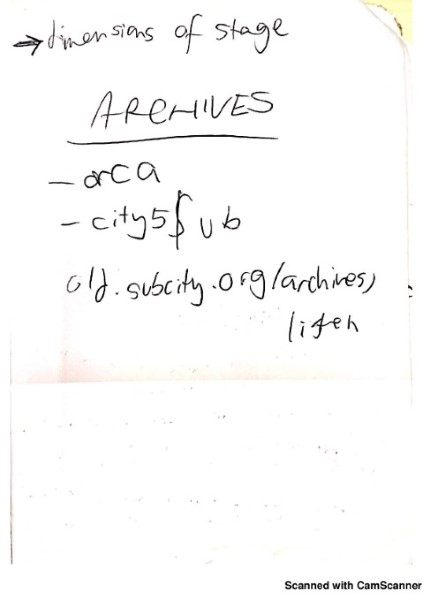 → dimensions of stage
ARCHIVES
- orca
- city5 ub
old.subcity.org/archives/
listen
Scanned with CamScanner